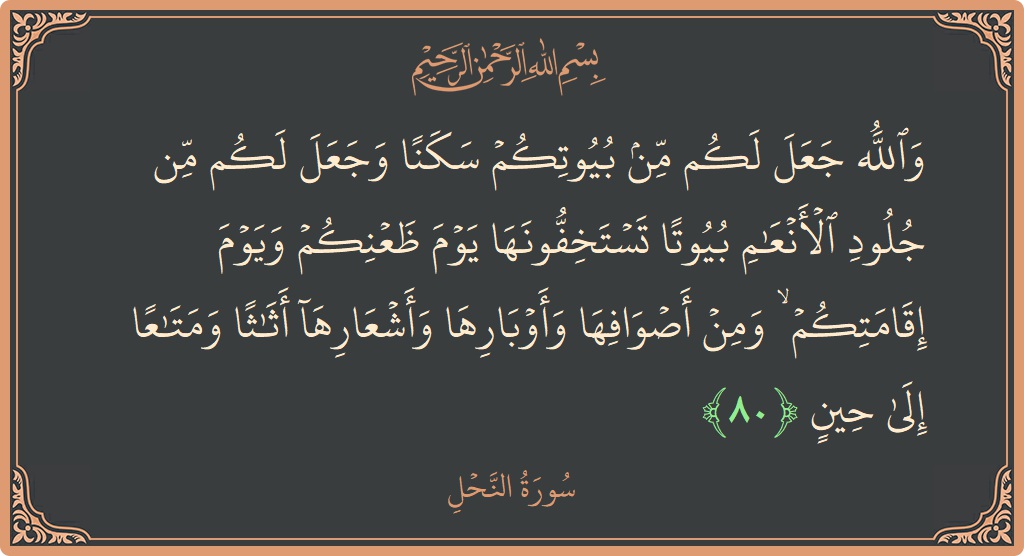 بِسْمِ اللَّهِ الرَّحْمَٰنِ الرَّحِيمِ
وَٱللَّهُ جَعَلَ لَكُم مِّنۢ بُيُوتِكُمْ سَكَنًا وَجَعَلَ لَكُم مِّن
جُلُودِ ٱلْأَنْعَـٰمِ بُيُوتًا تَسْتَخِفُّونَهَا يَوْمَ ظَعْنِكُمْ وَيَوْمَ
إِقَامَتِكُمْ ۙ وَمِنْ أَصْوَافِهَا وَأَوْبَارِهَا وَأَشْعَارِهَآ أَثَـٰثًا وَمَتَـٰعًا
إِلَىٰ حِينٍ ﴿٨٠﴾
سُورَةُ النَّحْلِ